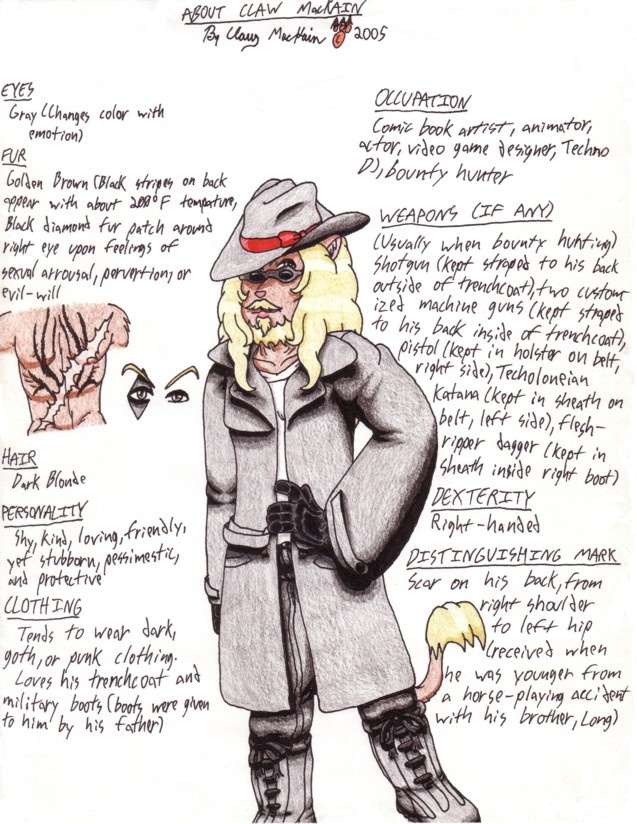 ABOUT CLAW MacKAIN
By Clawy MacKain © 2005
EYES
Gray (Changes color with
emotion)
FUR
Golden Brown (Black stripes on back
appear with about 200°F tempature,
Black diamond fur patch around
right eye upon feelings of
sexual arrousal, pervertion, or
evil-will
HAIR
Dark Blonde
PERSONALITY
Shy, kind, loving, friendly,
yet stubborn, pessimestic,
and protective
CLOTHING
Tends to wear dark,
goth, or punk clothing.
Loves his trenchcoat and
military boots (boots were given
to him by his father)
OCCUPATION
Comic book artist, animator,
actor, video game designer, Techno
DJ, bounty hunter
WEAPONS (IF ANY)
(Usually when bounty hunting)
Shotgun (kept straped to his back
outside of trenchcoat), two custom
ized machine guns (kept straped
to his back inside of trenchcoat),
pistol (kept in holster on belt,
right side), Techoloneian
Katana (kept in sheath on
belt, left side), flesh-
ripper dagger (kept in
sheath inside right boot)
DEXTERITY
Right-handed
DISTINGUISHING MARK
Scar on his back, from
right shoulder
to left hip
(received when
he was younger from
a horse-playing accident
with his brother, Long)